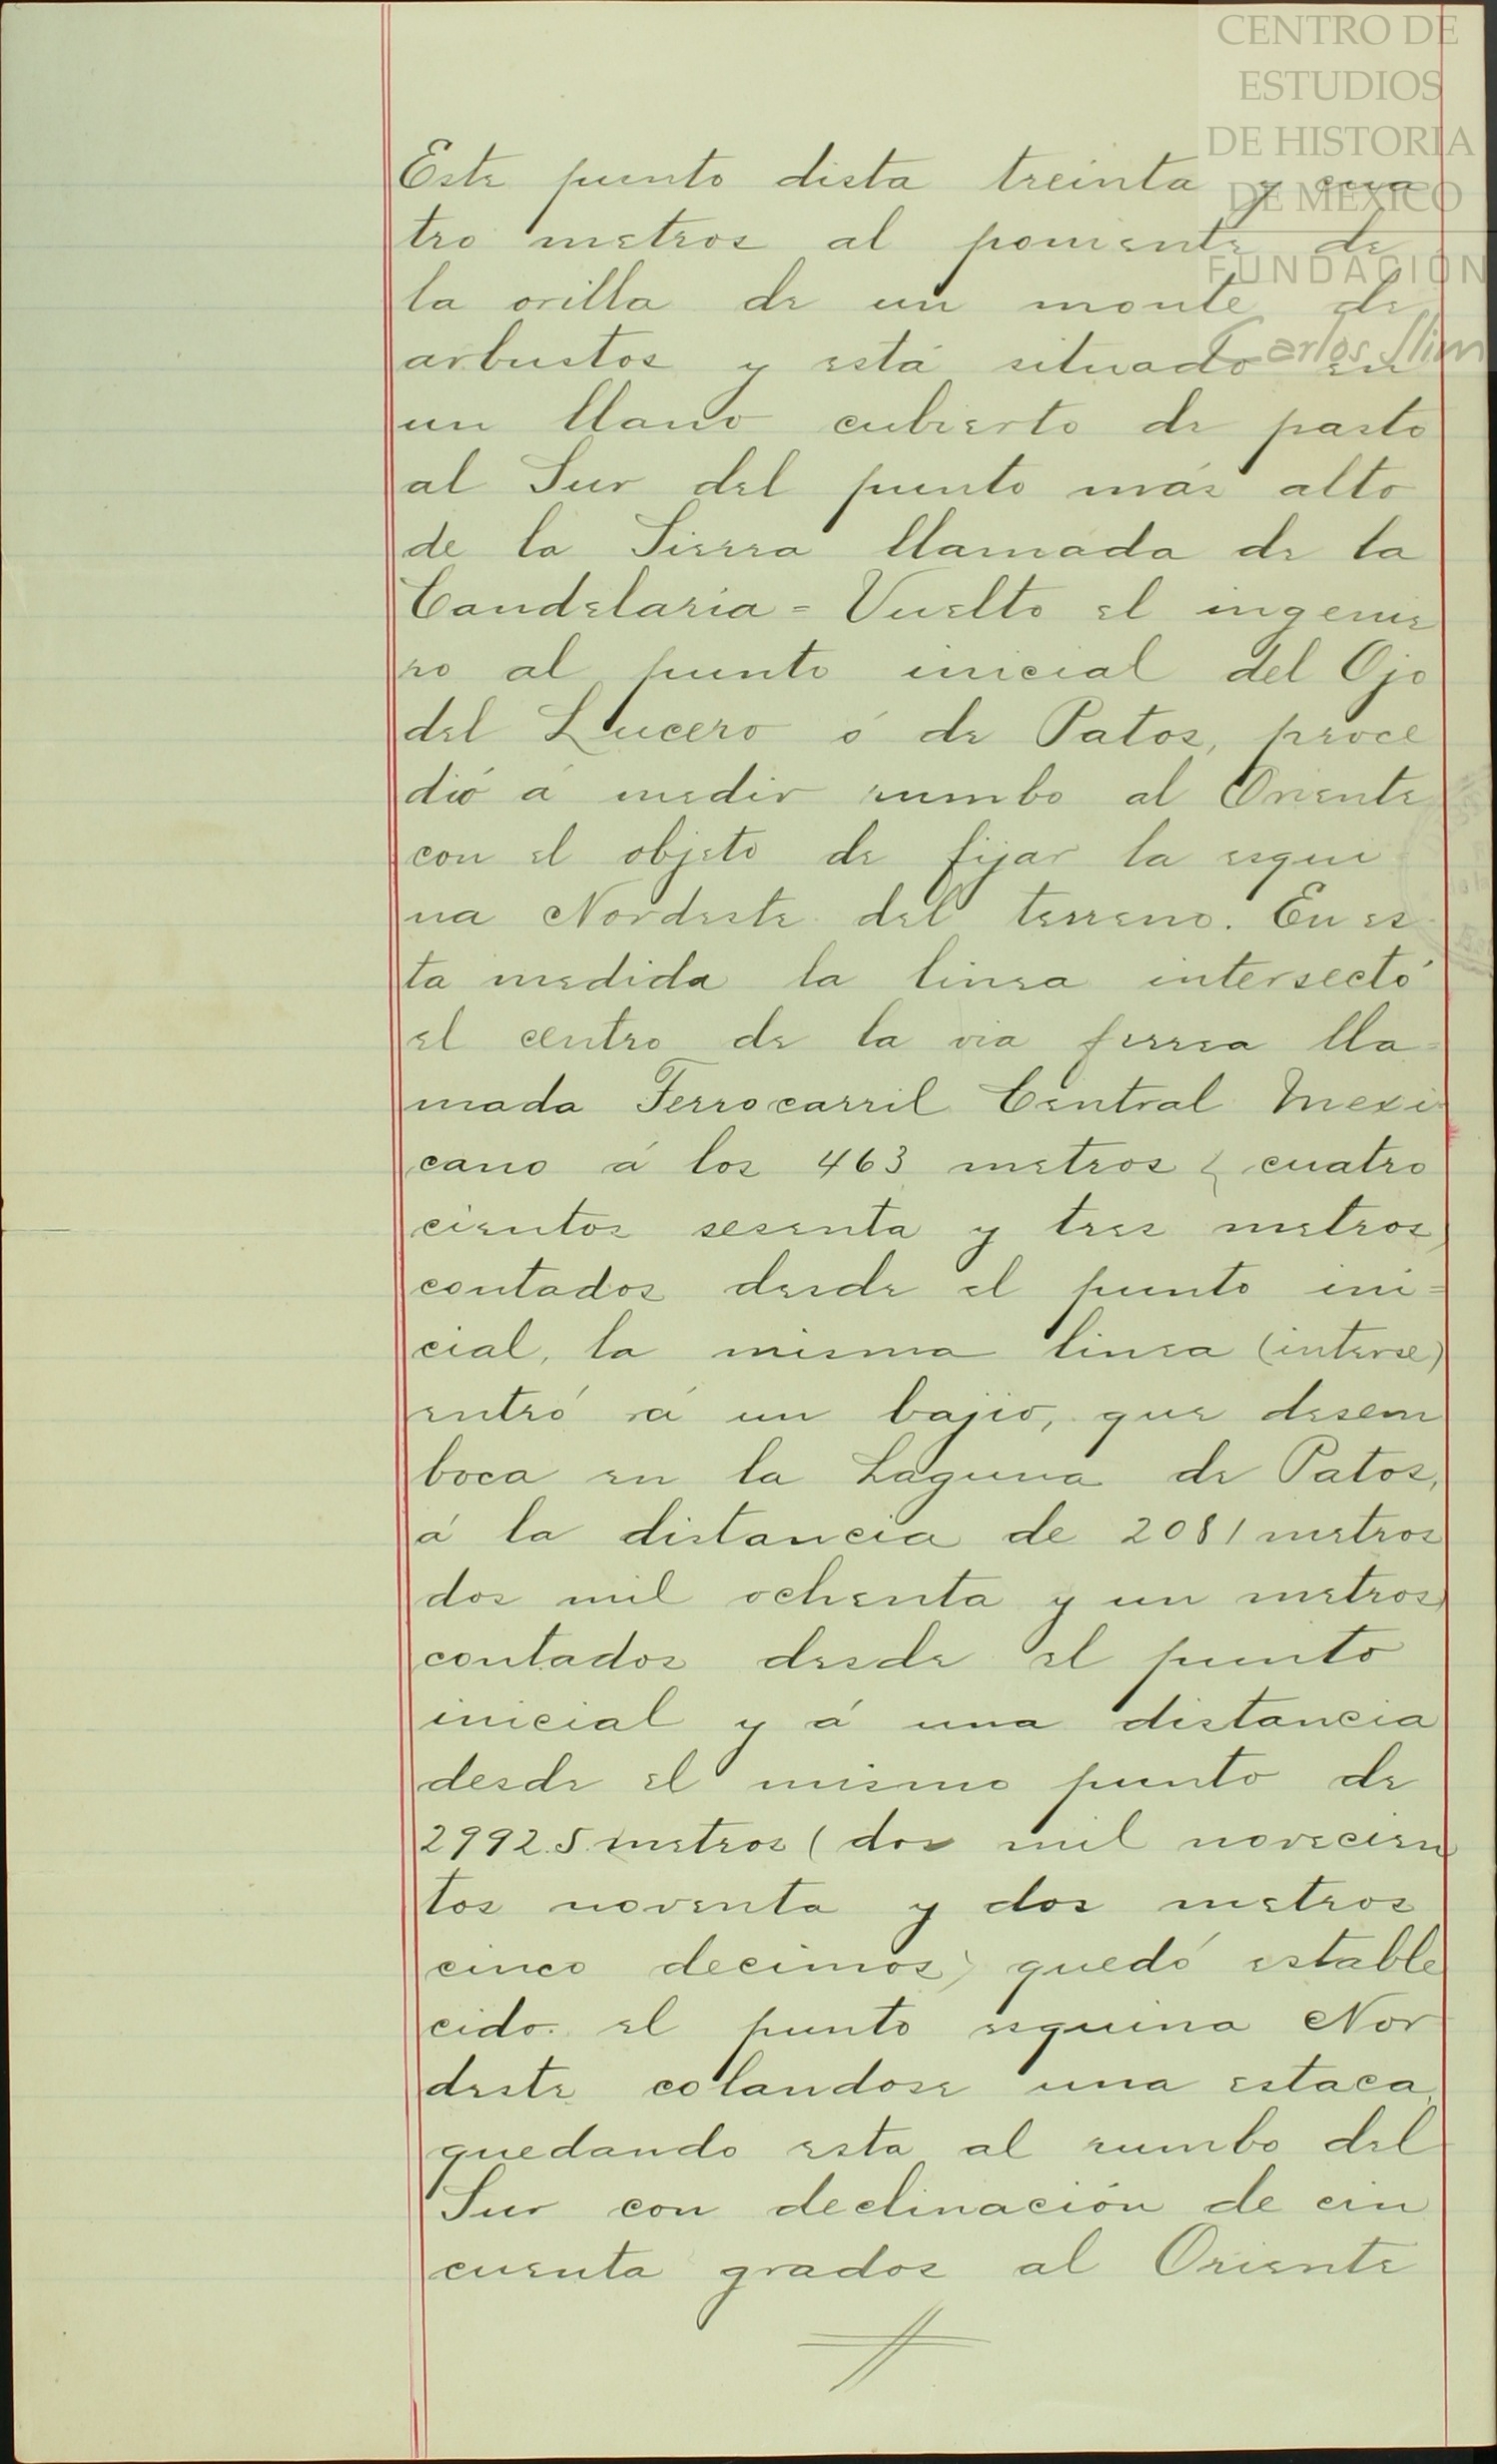 CENTRO DE
ESTUDIOS
DE HISTORIA
DE MEXICO
FUNDACIÓN
Carlos Slim
Este punto dista treinta y cua
tro metros al poniente de
la orilla de un monte de
arbustos y está situado en
un llano cubierto de pasto
al Sur del punto más alto
de la Sierra llamada de la
Candelaria = Vuelto el ingenie
ro al punto inicial del Ojo
del Lucero ó de Patos, proce
dió á medir rumbo al Oriente
con el objeto de fijar la esqui
na Nordeste del terreno. En es
ta medida la linea intersectó
el centro de la via ferrea lla=
mada Ferrocarril Central Mexi
cano á los 463 metros ( cuatro
cientos sesenta y tres metros)
contados desde el punto ini=
cial, la misma linea (interse)
entró á un bajio, que desem
boca en la Laguna de Patos,
á la distancia de 2081 metros
dos mil ochenta y un metros)
contados desde el punto
inicial y á una distancia
desde el mismo punto de
2992.5 metros (dos mil novecien
tos noventa y dos metros
cinco decimos) quedó estable
cido el punto esquina Nor
deste colandose una estaca,
quedando esta al rumbo del
Sur con declinación de cin
cuenta grados al Oriente